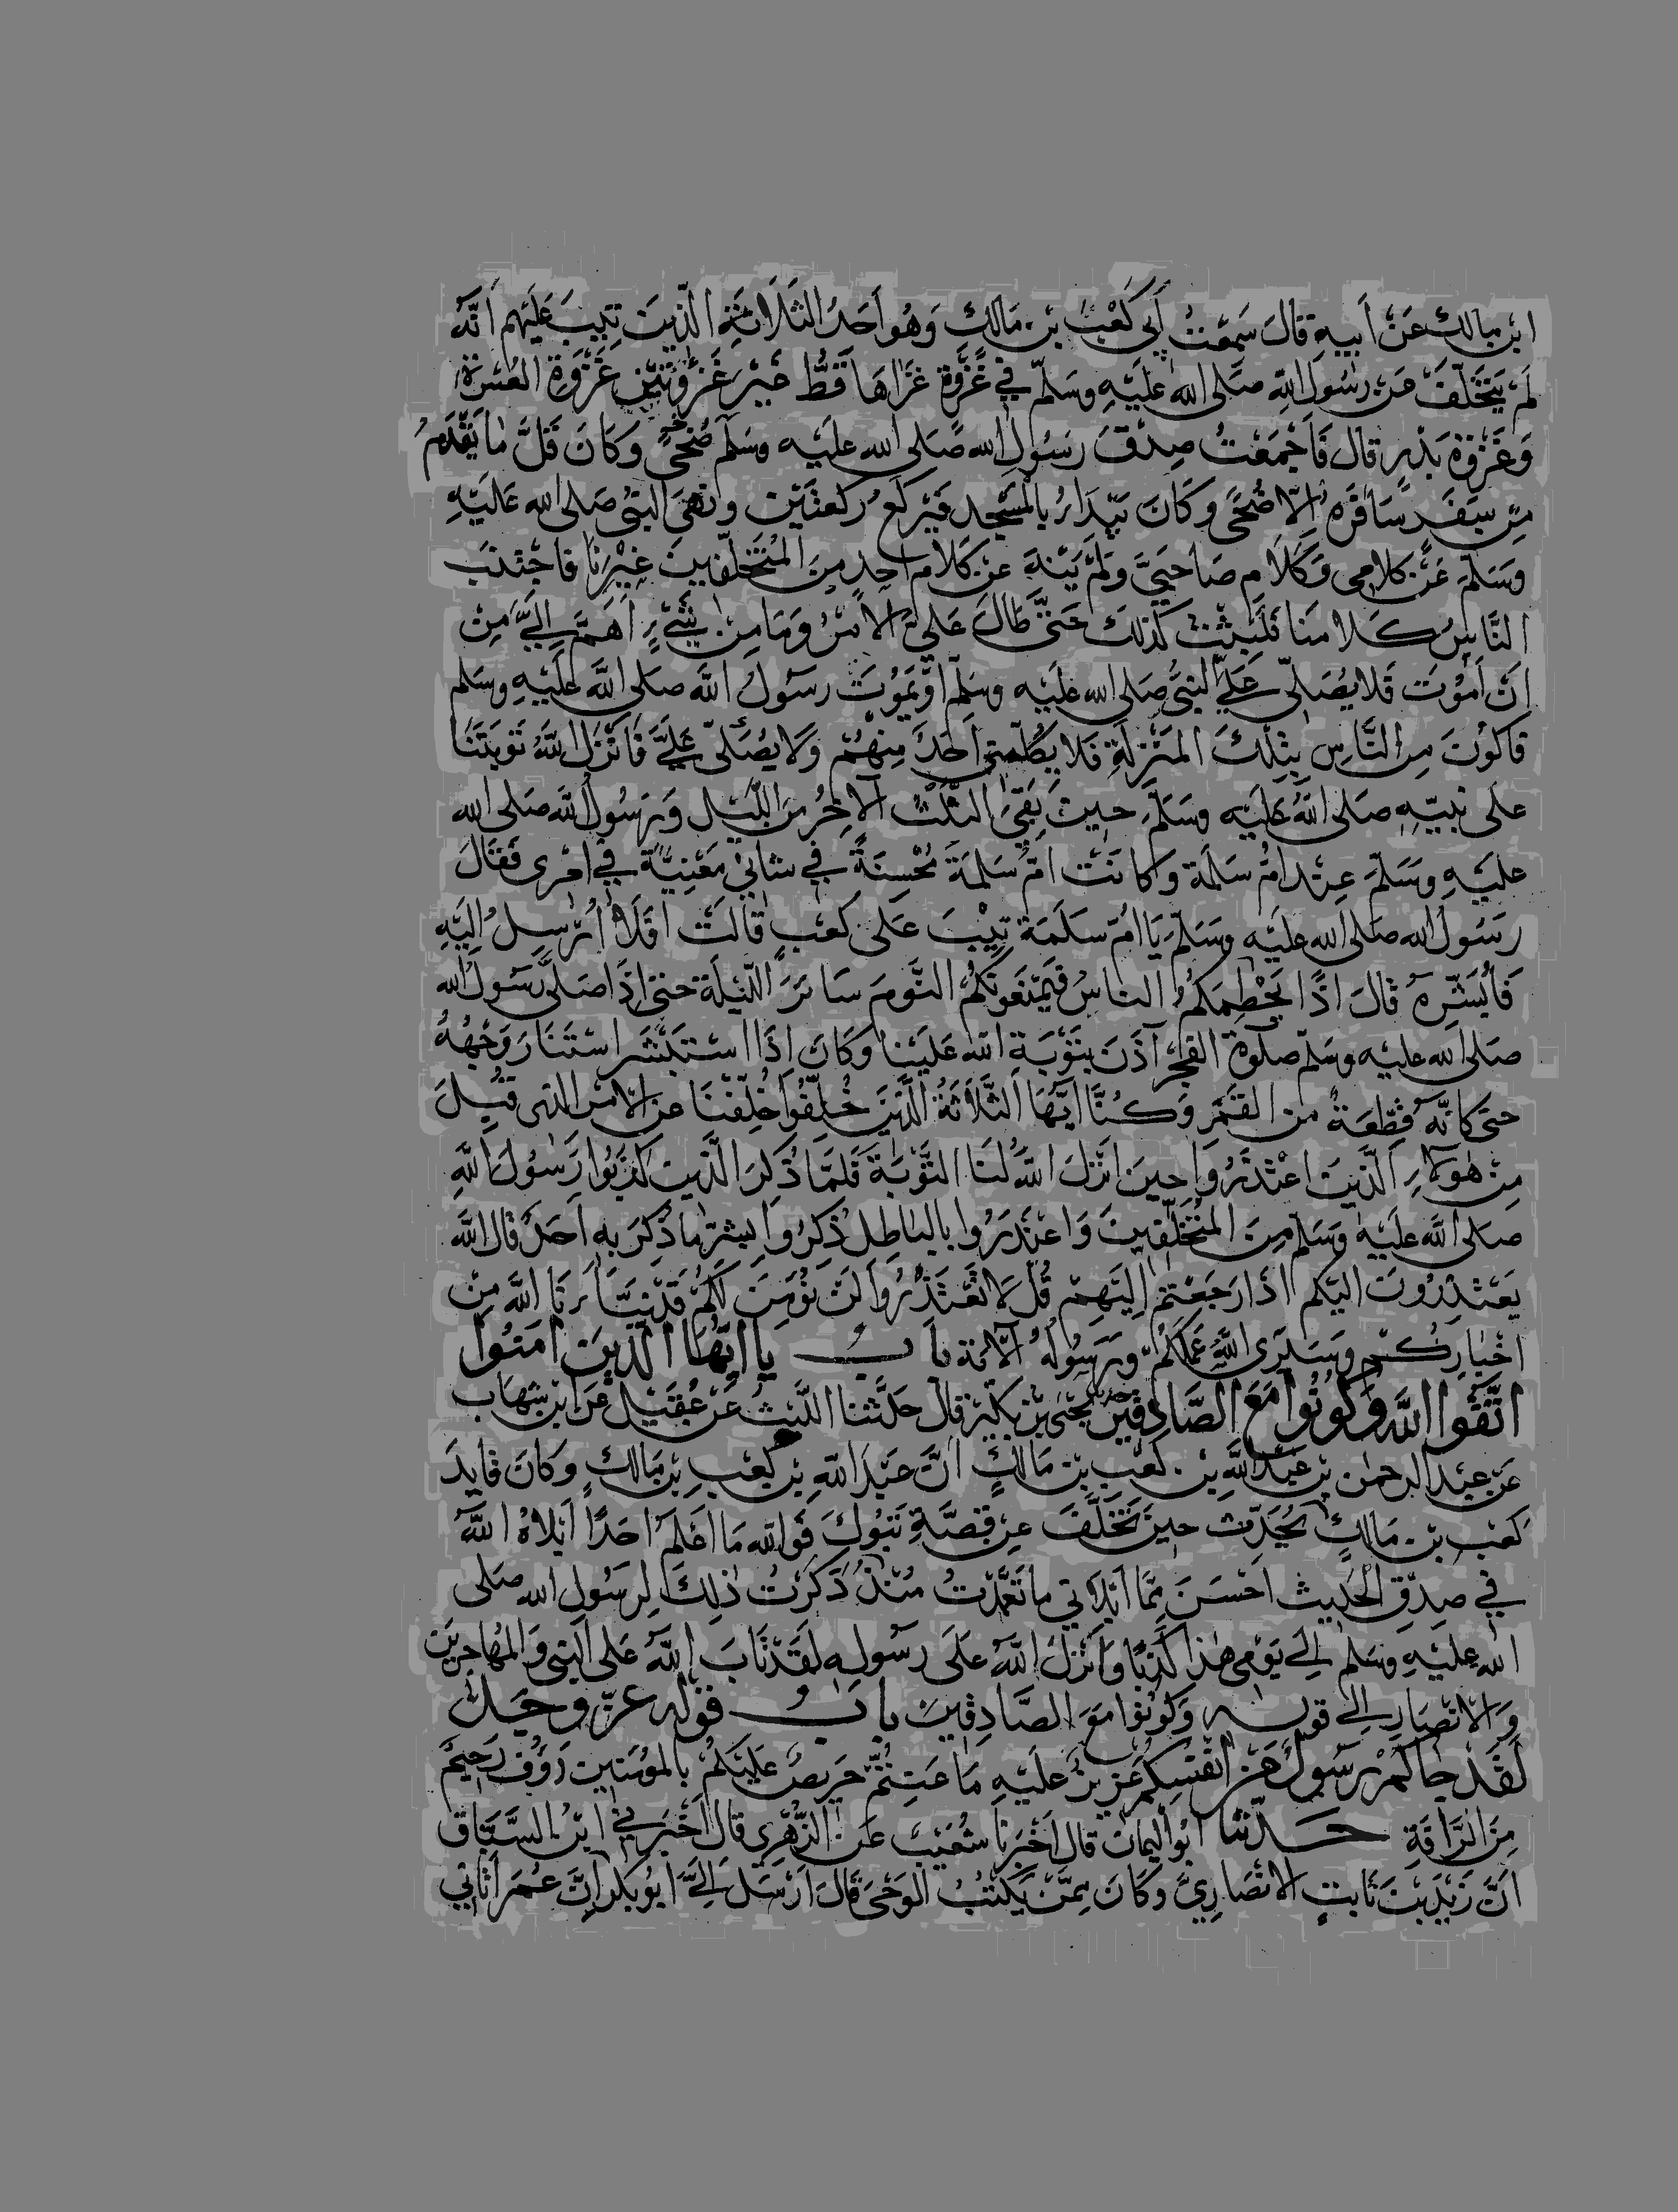 ابن مالك عَنْ اَبيهِ قالَ سَمِعْتُ اَبي كَعْبَ بن مَالكٍ وَهُو اَحَدُ الثَّلَاثَةِ الّذينَ تِيبَ عَلَيْهم اَنَّهُ
لَمْ يَتَخَلَّفْ عَن رسُول اللهِ صلى الله عليْهِ وسَلّم في غَزْوَةٍ غزَاهَا قَطُّ غيْرَ غَزْوَتَيْنِ غَزْوَةِ العُسْرَةِ
وَغَزْوَةِ بَدْرٍ قالَ فَاَجْمَعْتُ صِدْقَ رسُولِ الله صَلى الله عليْه وسَلّم ضُحًى وَكَانَ قَلَّ مَا يَقْدَمُ
مِن سَفَرٍ سَافَرَهُ اِلّا ضُحًى وَكَانَ يَبْدَاُ بالمَسْجِد فَيَرْكَعُ رَكعَتَيْن وَنَهَى النبىُّ صَلى الله عَلَيْهِ
وَسَلّمَ عَنْ كلَامِى وَكَلَام صَاحبَيَّ وَلَمْ يَنْهَ عن كَلَام اَحدٍ مِنَ المُتَخلّفينَ غَيْرنَا فاجْتَنَبَ
النَّاسُ كَلامنَا فَلَبِثْتُ كَذلكَ حَتّى طَالَ عَلَىَّ الاَمْرُ وَمَا مِنْ شَيْءٍ اَهَمَّ اِلَيَّ مِنْ
اَنْ اَمُوْتَ فَلا يُصَلّى عَلَيَّ النبيُّ صَلى الله عليْه وسَلّم اَوْ يَمُوْتَ رسُولُ اللهِ صلى اللهُ عَلَيْهِ وسَلم
فاَكُوْنَ مِن النَّاسِ بِتِلْكَ المَنْزِلَةِ فَلا يُكلّمُنى اَحَدٌ مِنْهُمْ وَلَا يُصَلّى عَلَيَّ فَاَنْزَلَ اللهُ تَوْبَتَنَا
عَلى نَبيّهِ صَلى اللهُ عَلَيْه وسَلَّمَ حينَ بَقِيَ الثلُثُ الآخِرُ منَ اللّيْل وَرَسُولُ اللهِ صَلى الله
عليْهِ وسَلّمَ عِنْدَ امّ سَلَمَة وكانَتْ امّ سَلَمَةَ مُحْسِنَةً في شانى مَعْنِيَّةً في امْرى فقالَ
رَسُولُ الله صَلى الله عليْه وسَلّمَ يَا اُمّ سَلَمَة تِيْبَ عَلى كَعبٍ قالَتْ اَفَلَا اُرْسِلُ اِلَيْهِ
فَاُبَشّرهُ قالَ اذًا يَحْطِمَكمُ الناسُ فيَمْنَعُونَكُمُ النَّومَ سَائرَ اللّيْلَة حتى اِذَا صَلَّى رَسُولُ الله
صَلى الله عليْه وسَلّم صلَوةَ الفَجْر آذَنَ بتَوْبَةِ الله عَلَيْنا وَكَانَ اِذَا اسْتَبْشَرَ اسْتَنَارَ وَجْهُهُ
حتى كانّه قِطْعَةٌ من القَمَر وَكُنَّا ايّهَا الثَّلَاثَةُ الّذينَ خُلّفُوا خُلِّفْنَا عن الاَمْر الذى قُبِلَ
مِنْ هؤلاءِ الّذينَ اعْتَذَرُوا حِينَ اَنْزلَ اللهُ لَنَا التَّوْبَةَ فَلَمَّا ذُكرَ الّذين كذَبُوا رَسُولَ اللهِ
صلى الله عَلَيْه وَسَلّم مِنَ المُتَخَلّفينَ وَاعتَذَرُوا بالبَاطِل ذُكرُوا بشَرّ مَا ذُكرَ بهِ اَحَدٌ قال الله
يَعْتَذِرُونَ اليْكم اذَا رَجَعْتُم اِليْهِمْ قُل لَا تَعْتَذِرُوا لَنْ نُؤمِنَ لَكُم قَدْ نَبَّاَنَا اللهُ مِن
اخْبَارِكُمْ وسَيَرَى اللهُ عَمَلَكُم وَرَسُولُه الآية بابٌ يا ايّهَا الّذينَ امَنُوا
اتَّقُوا اللهَ وَكُونُوا مَعَ الصَّادِقِيْنَ يحْيَى بْن بُكَيْر قال حَدَّثَنا اللّيْثُ عَن عُقَيْل عَن ابن شِهَاب
عَن عبْد الرحمن بْن عَبْد اللهِ بن كعْبِ بن مَالكٍ اَنَّ عَبْدَ اللهِ بن كَعْبِ بن مَالك وَكَانَ قايدَ
كَعْب بن مَالكٍ يُحَدّث حينَ تَخَلَّفَ عن قِصّةِ تَبُوكَ فَوَالله مَا اَعْلَمُ اَحَدًا اَبْلَاهُ اللهُ
في صِدْق الحَديث اَحْسَنَ مِمَّا اَبْلَانى مَا تَعَمَّدْتُ مُنْذُ ذَكَرْتُ ذلِكَ لِرسُول الله صَلى
الله عليْهِ وَسَلم اِلَى يَوْمى هذا كَذِبًا وَاَنْزَلَ اللهُ عَلَى رَسُولِه لَقَد تَابَ اللهُ عَلى النَّبى وَالمُهَاجِرِيْنَ
وَالانصَارِ اِلى قولِه وَكُونُوا مَعَ الصَّادِقيْنَ بابُ قولِه عزّ وَجَلّ
لَقَد جَاكُمْ رَسُولٌ مِن اَنْفُسِكُم عَزيزٌ عَلَيْهِ مَا عَنِتُّمْ حَرِيصٌ عَلَيْكُم بالمؤمنين رَؤُفٌ رَحِيْمٌ
مِنَ الرَّافَةِ حَدّثنا اَبُو اليمَان قال اَخْبَرنَا شُعَيْبٌ عَن الزُّهْرى قال اَخْبَرَني ابنُ السَّبَّاقِ
اَنَّ زَيْدَ بْنَ ثَابتٍ الانْصَارِيَّ وَكَانَ مِمّنْ يَكْتُبُ الوَحْيَ قَالَ اَرْسَلَ اِلَيَّ ابُو بكر اِنَّ عُمَر اَتَاني